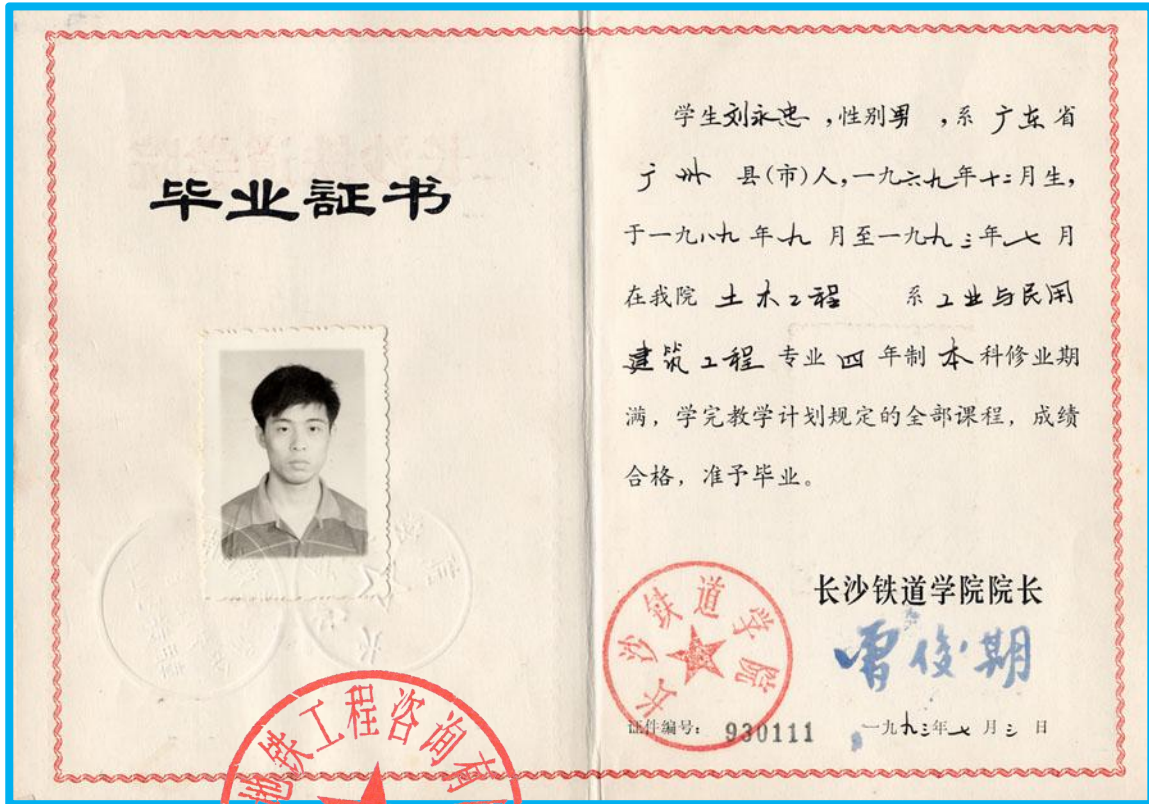 毕业証书
学生刘永忠，性别男，系广东省
广州 县(市)人，一九六九年十二月生，
于一九八九年九月至一九九三年七月
在我院 土木工程 系工业与民用
建筑工程 专业 四 年制 本 科修业期
满，学完教学计划规定的全部课程，成绩
合格，准予毕业。
长沙铁道学院院长
曾俊期
长沙铁道学院
证件编号：930111 一九九三年七月三日
地铁工程咨询有